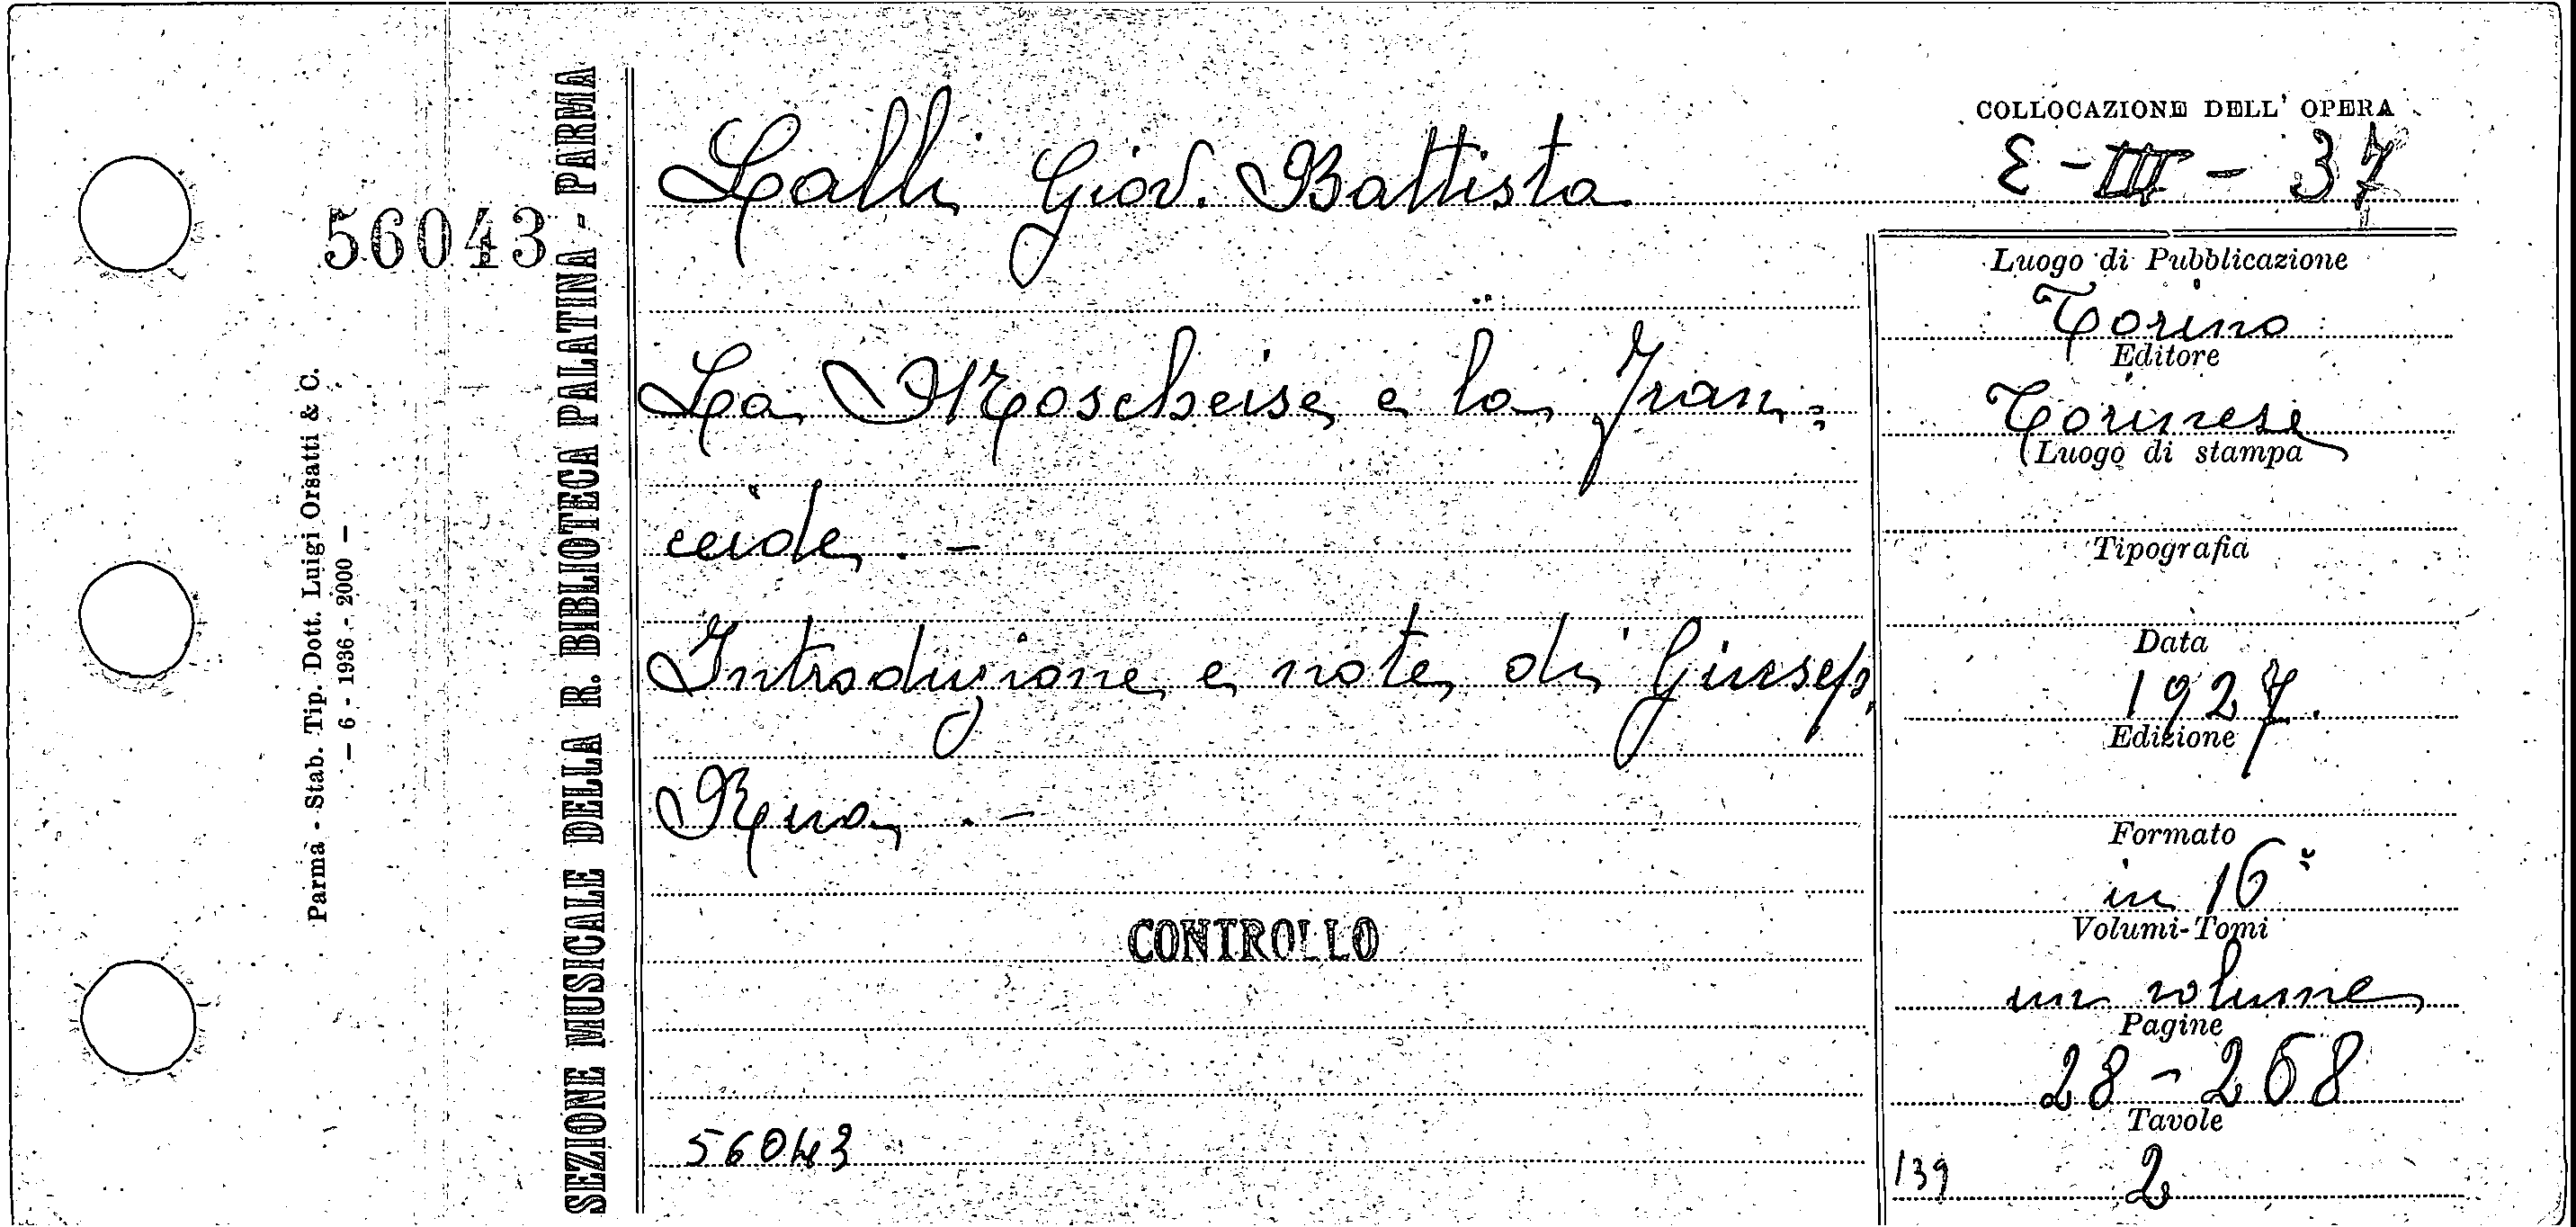 COLLOCAZIONE DELL' OPERA
E-III-37
56043
Parma - Stab. Tip. Dott. Luigi Orsatti & C.
— 6 - 1936 - 2000 —
SEZIONE MUSICALE DELLA R. BIBLIOTECA PALATINA - PARMA
Lalli Giov. Battista
La Moscheide e la Fran=
ceide. -
Introduzione e note di Giusep.
Rua. -
CONTROLLO
56043
Luogo di Pubblicazione
Torino
Editore
Torinese
Luogo di stampa
Tipografia
Data
1927.
Edizione
Formato
in 16°
Volumi-Tomi
un volume
Pagine
28-268
Tavole
139
2